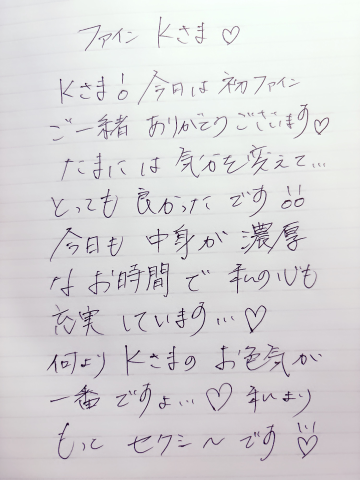 ファイン Kさま♡
Kさま! 今日は初ファイン
ご一緒 ありがとうございます♡
たまには 気分を変えて...
とっても 良かったです!!
今日も 中身が 濃厚
なお時間で 私の心も
充実しています...♡
何より Kさまのお色気が
一番ですょ...♡ 私より
もっと セクシ〜です!!♡